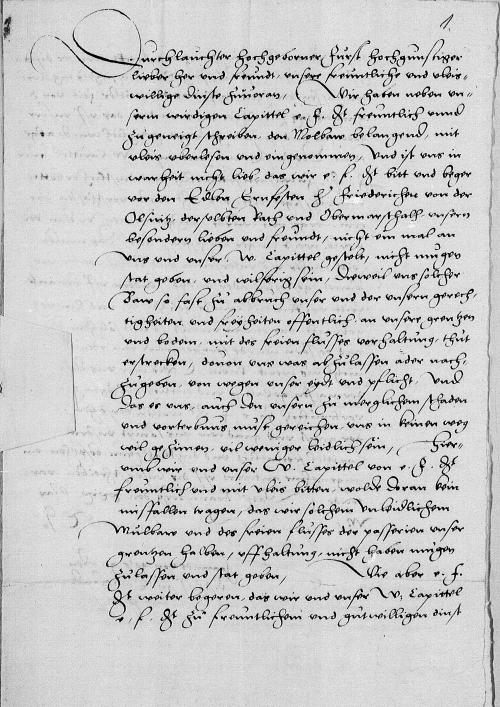 1.
Durchlauchter Hochgeborner Furst Hochgunstiger
lieber her und freundt, unsere freuntliche und vleis-
willige dinste zuvoran, Wir haben neben un-
serm wirdigen Capittel e. f. gt freuntlich unnd
zugeneigt schreiben, den Molbaw belangend, mit
vleis uberlesen und eingenommen, Und ist uns in
warheit nicht lieb, das wir e. f. gt bitt und beger
vor den Edlen Ernfesten hern Friederichen von der
Olsnitz, derselbten Rath und Obermarschalh unsern
besondern lieben und freundt, nicht ein mal an
uns und unser W. Capittel gestelt, nicht mugen
stat geben, und wilferig sein, Dieweil uns solcher
Baw so fast zu abbruch unser und der unsern gerech-
tigkeiten und freyheiten offentlich an unsere grentzen
und bodem, mit des freien flusses vorhaltung, thut
erstrecken, davon uns was abzulassen ader nach-
zugeben, von wegen unser eydt und pflicht, Und
das es uns, auch den unsern zu merglichem schaden
und vorterbnus must gereichen, uns in keinen weg
wil gezimen, vil weniger leidlich sein, Hier-
umb wir und unser W. Capittel von e. f. gt
freuntlich und mit vleis bitten, wolde daran kein
misfallen tragen, das wir solchem unleidlichem
Mulbaw und des freien flusses der passerien unser
grentzen halben, uffhaltung, nicht haben mugen
zulassen und stat geben, Wie aber e. f.
gt weiter begeren, das wir und unser W. Capittel
e. f. gt zu freuntlichem und gutwilligen dinst